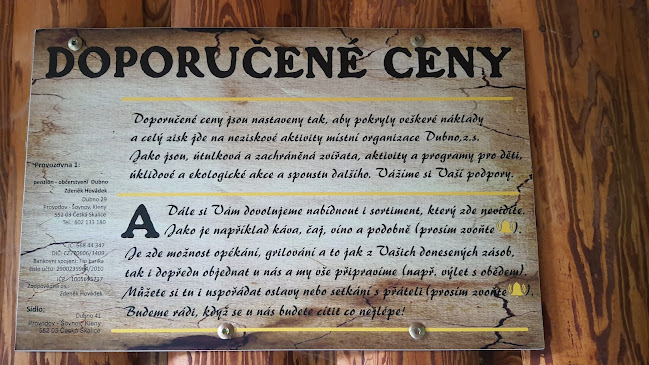 DOPORUČENÉ CENY
Doporučené ceny jsou nastaveny tak, aby pokryly veškeré náklady
a celý zisk jde na neziskové aktivity místní organizace Dubno,z.s.
Jako jsou, útulková a zachráněná zvířata, aktivity a programy pro děti,
úklidové a ekologické akce a spoustu dalšího. Vážíme si Vaší podpory.
A Dále si Vám dovolujeme nabídnout i sortiment, který zde nevidíte.
Jako je například káva, čaj, víno a podobně (prosím zvoňte ).
Je zde možnost opékání, grilování a to jak z Vašich donesených zásob,
tak i dopředu objednat u nás a my vše připravíme (např. výlet s obědem).
Můžete si tu i uspořádat oslavy nebo setkání s přáteli (prosím zvoňte ).
Budeme rádi, když se u nás budete cítit co nejlépe!
Provozovna 1:
penzion - občerstvení Dubno
Zdeněk Hovádek
Dubno 29
Provodov - Šonov, Kleny
552 03 Česká Skalice
Tel.: 602 133 180
Bankovní spojení: Fio banka
Zdeněk Hovádek
Sídlo:
Dubno 41
Provodov - Šonov, Kleny
552 03 Česká Skalice